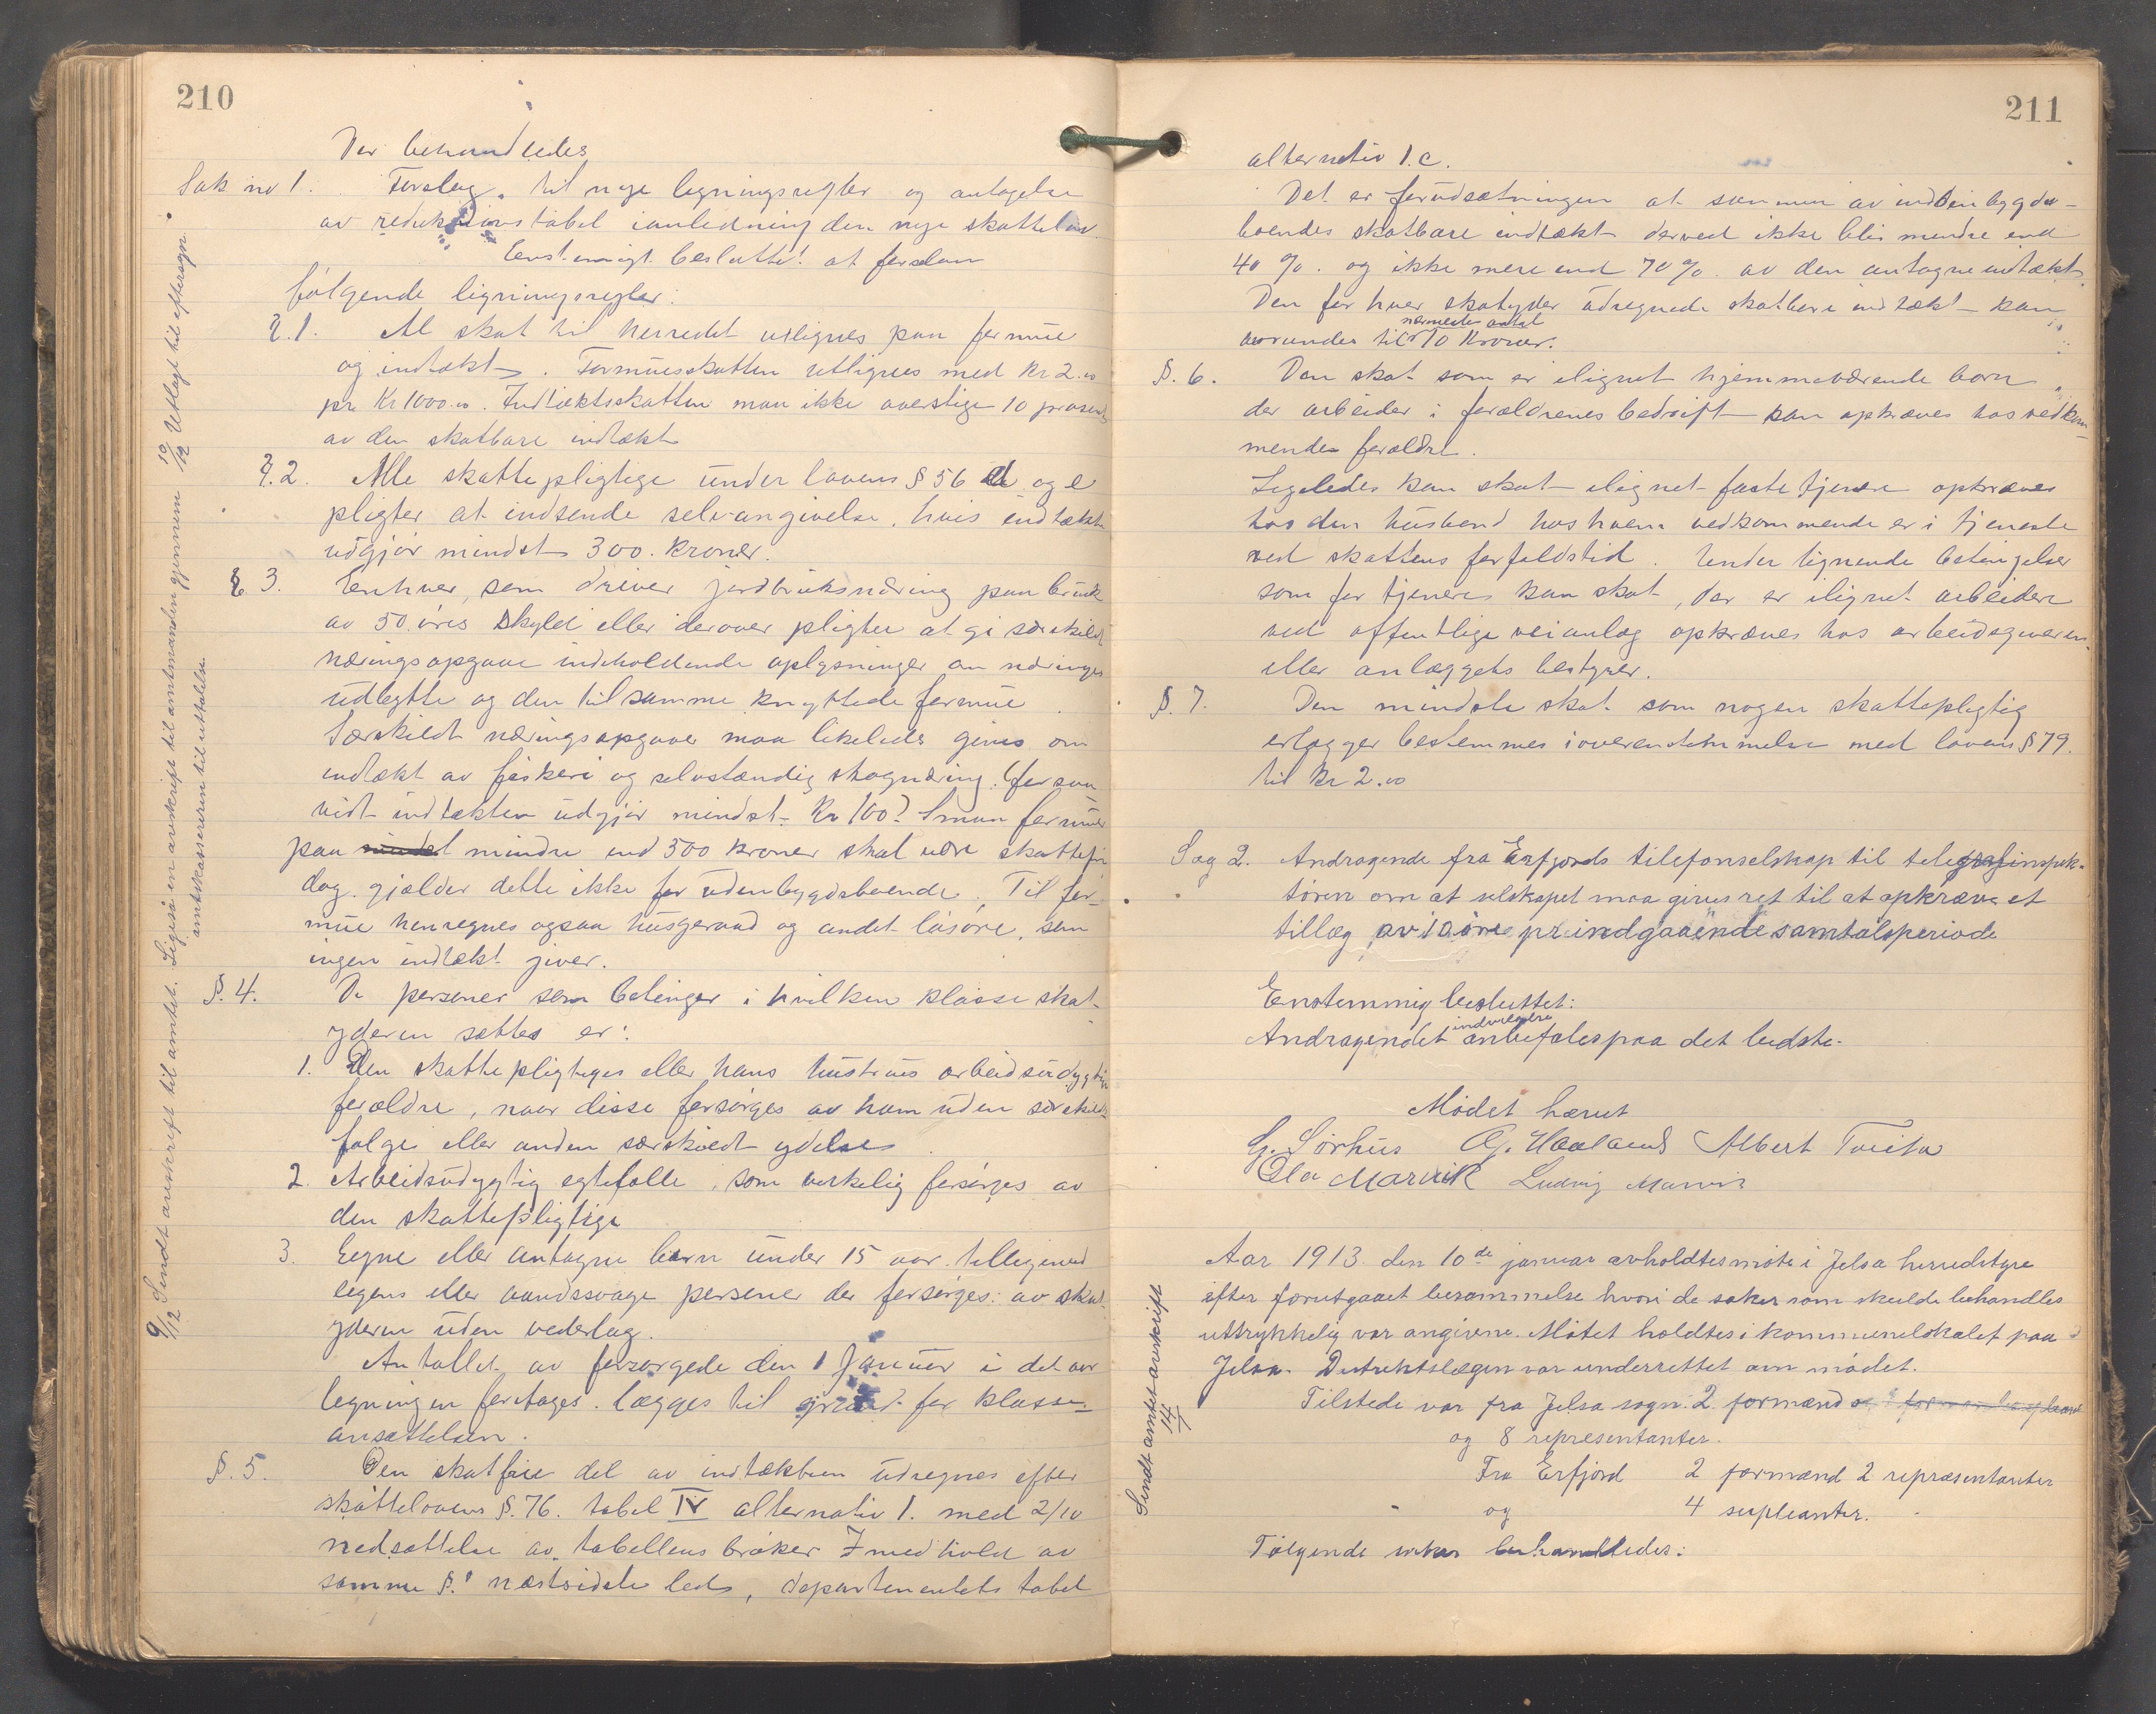 210
Der behandledes
Sak no 1. Forslag til nye ligningsregler og antagelse
av reduktionstabel i anledning den nye skattelov.
Enstemigt beslutted at foreslaa
følgende ligningsregler:
§. 1. Al skat til herredet utlignes paa formue
og indtækt. Formuesskatten utlignes med kr 2.00
pr. Kr 1000.00. Indtæktsskatten maa ikke overstige 10 procent
av den skatbare indtækt
§. 2. Alle skattepligtige under lovens § 56 d og e
pligter at indsende selvangivelse, hvis indtækt
udgjør mindst 300. kroner.
§ 3. Enhver, som driver jordbruksnæring paa bruk
av 50 øres skyld eller derover pligter at gi særskildt
næringsopgave indeholdende oplysninger om næringens
udbytte og den til samme knyttede formue
Særskildt næringsopgaver maa likeledes gives om
indtækt av fiskeri og selvstændig skognæring (forsaa
vidt indtækten udgjør mindst Kr 100) Smaa formuer
paa mindre end 500 kroner skal være skattefri
dog gjælder dette ikke for udenbygdsboende. Til for-
mue henregnes ogsaa husgeraad og andet løsøre, som
ingen indtækt giver.
§. 4. De personer som betinger i hvilken klasse skat-
yderen sættes er:
1. Den skattepligtiges eller hans hustrues arbeidsudygtige
forældre, naar disse forsørges av ham uden særskildt
følge eller anden særskildt ydelse
2. Arbeidsudygtig egtefælle, som virkelig forsørges av
den skattepligtige
3. Egne eller antagne barn under 15 aar tilligemed
legems eller aandssvage personer der forsørges av skat-
yderen uden vederlag.
Antallet av forsørgede den 1 Januar i det aar
ligningen foretages lægges til grund for klasse-
ansættelsen.
§. 5. Den skatfrie del av indtækten udregnes efter
skattelovens §. 76. tabel IV alternativ 1. med 2/10
nedsættelse av tabellens brøker I medhold av
samme §.' næstsidste led, departementets tabel
9/12 Sendt avskrift til amtet. Ligesaa en avskrift til amtmanden gjennem
amtskassereren til uttalelse.
10/12 Utlagt til eftersyn
211
alternativ 1.c.
Det er forudsætningen at summen av indenbygds-
boendes skatbare indtækt derved ikke blir mindre end
40 %. og ikke mere end 70 %. av den antagne indtækt.
Den for hver skatyder udregnede skatbare indtækt kan
nærmeste antal
avrundes til 10 Kroner.
§. 6. Den skat som er ilignet hjemmeværende børn
der arbeider i forældrenes bedrift kan opkræves hos vedkom-
mendes forældre.
Ligeledes kan skat ilignet faste tjenere opkræves
hos den husbond hos hvem vedkommende er i tjeneste
ved skattens forfaldstid. Under lignende betingelser
som for tjenere kan skat, der er ilignet arbeidere
ved offentlige veianlæg opkræves hos arbeidsgiveren
eller anlæggets bestyrer.
§. 7. Den mindste skat som nogen skattepligtig
erlægger bestemmes i overenstemmelse med lovens § 79.
til kr 2.00
Sag 2. Andragende fra Erfjords tilefonselskap til telegrafinspek-
tøren om at selskapet maa gives ret til at opkræve et
tillæg av 10 øre pr indgaaende samtalsperiode
Enstemmig besluttet:
indvilgelse
Andragendet anbefales paa det bedste.
Mødet hævet
G. Sørhus O. G. Haaland Albert Tveita
Ola Marvik Ludvig Marvik
Aar 1913 den 10de januar avholdtes møte i Jelsa herredstyre
efter forutgaaet berammelse hvori de saker som skulde behandles
uttrykkelig var angivne. Møtet holdtes i kommunelokalet paa
Jelsa. Distriktslægen var underrettet om mødet.
Tilstede var fra Jelsa sogn: 2 formænd
og 8 representanter.
Fra Erfjord 2 formænd 2 repræsentanter
og 4 supleanter.
Følgende saker behandledes:
Sendt amtet avskrift
14/1